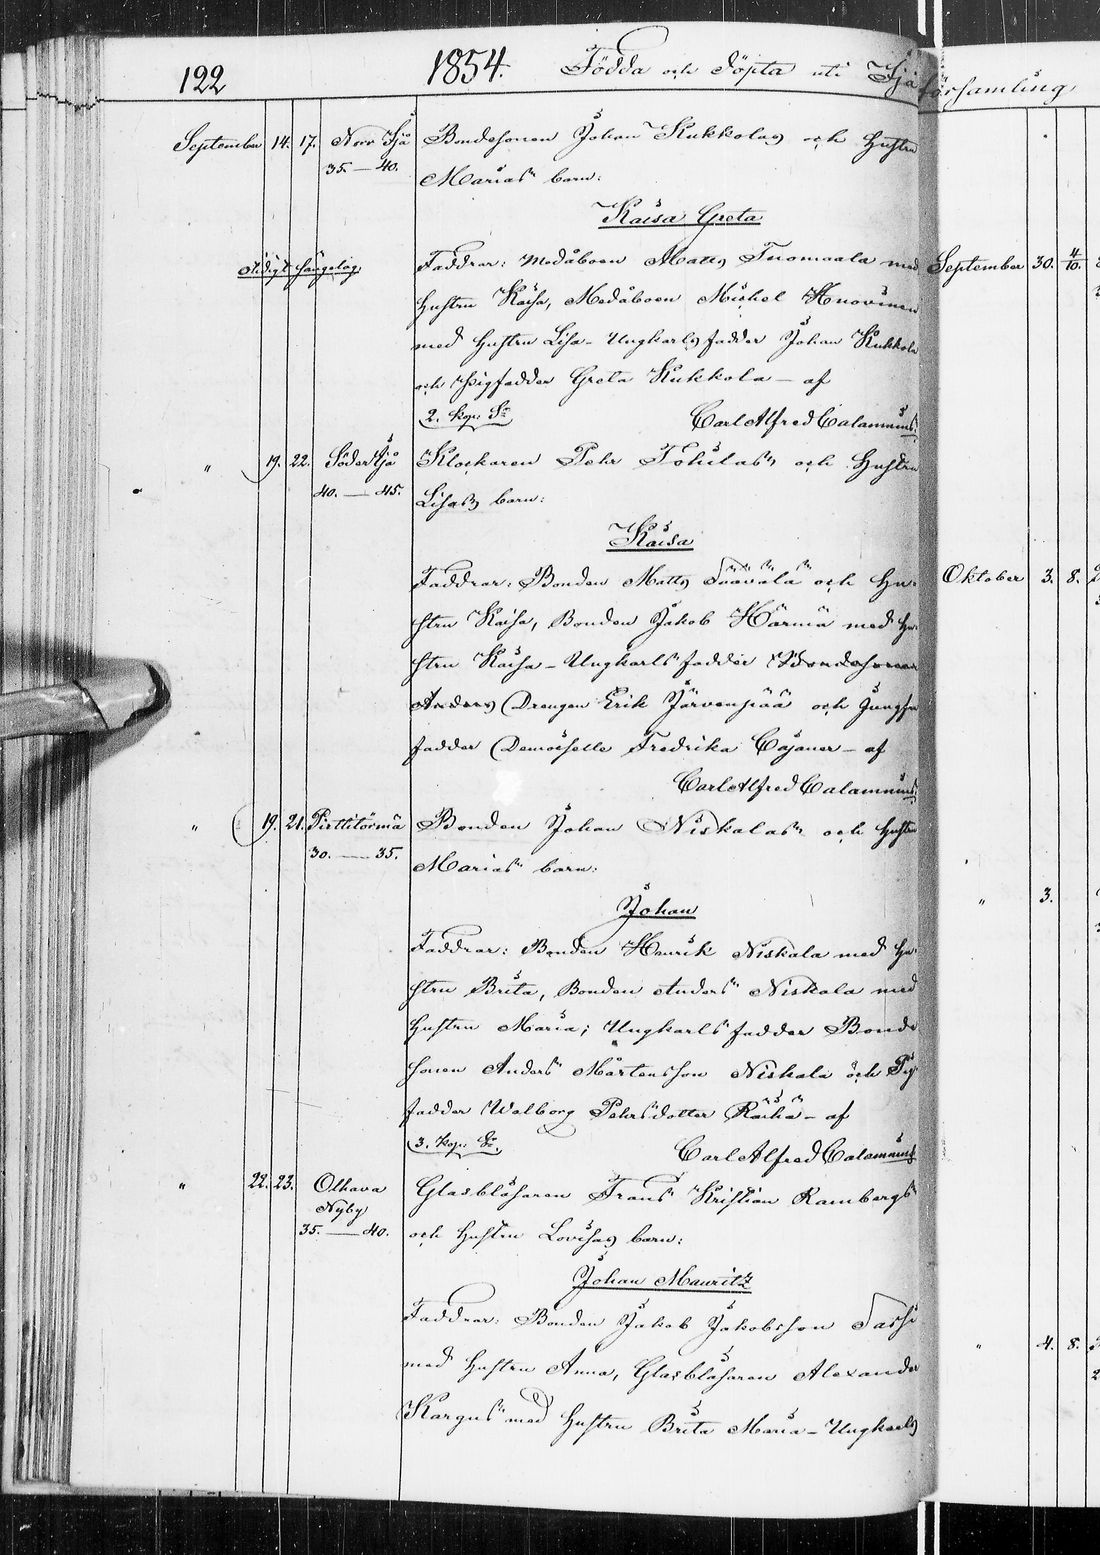 122 1854. Födda och döpta uti Ijå församling
September 14. 17. Norr Ijå Bondesonen Johan Kukkolas och hustru
35. — 40. Marias barn:
Kaisa Greta
Faddrar: Medåboen Matts Tuomaala med
hustru Kaisa, Medåboen Mickel
med hustru Lisa – Ungkarlsfadder Johan Kukkola
och Pigfadder Greta Kukkola – af
2. kop. Sr Carl Alfred Calamnius.
" 19. 22. Söder Ijå Klockaren Pehr Tökilas och hustru
40. — 45. Lisas barn:
Kaisa
Faddrar: Bonden Matts Säävälä och hu-
stru Kaisa, Bonden Jakob Härmä med hu-
stru Kaisa – Ungkarlsfadder Bondesonen
Anders Drengen Erik Järvenpää och Jungfru
fadder Demoiselle Fredrika Cajaner – af
Carl Alfred Calamnius.
" 19. 21. Pirttitörmä Bonden Johan Niskalas och hustru
30. — 35. Marias barn:
Johan
Faddrar: Bonden Henrik Niskala med hu-
stru Brita, Bonden Anders Niskala med
hustru Maria; Ungkarlsfadder Bonde
sonen Anders Mårtensson Niskala och Pig
fadder Walborg Pehrsdotter Räihä – af
3. kop. Sr. Carl Alfred Calamnius
" 22. 23. Olhava Glasblåsaren Frans Kristian Rambergs
Nyby
35. — 40. och hustru Lovisas barn:
Johan Mauritz
Faddrar: Bonden Jakob Jakobsson Sassi
med hustru Anna, Glasblåsaren Alexander
Kargus med hustru Brita Maria – Ungkarls
September 30. 4/10.
Oktober 3. 8.
" 3.
" 4. 8.